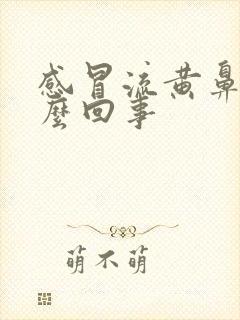 感冒流黄鼻
麼回事
萌不萌